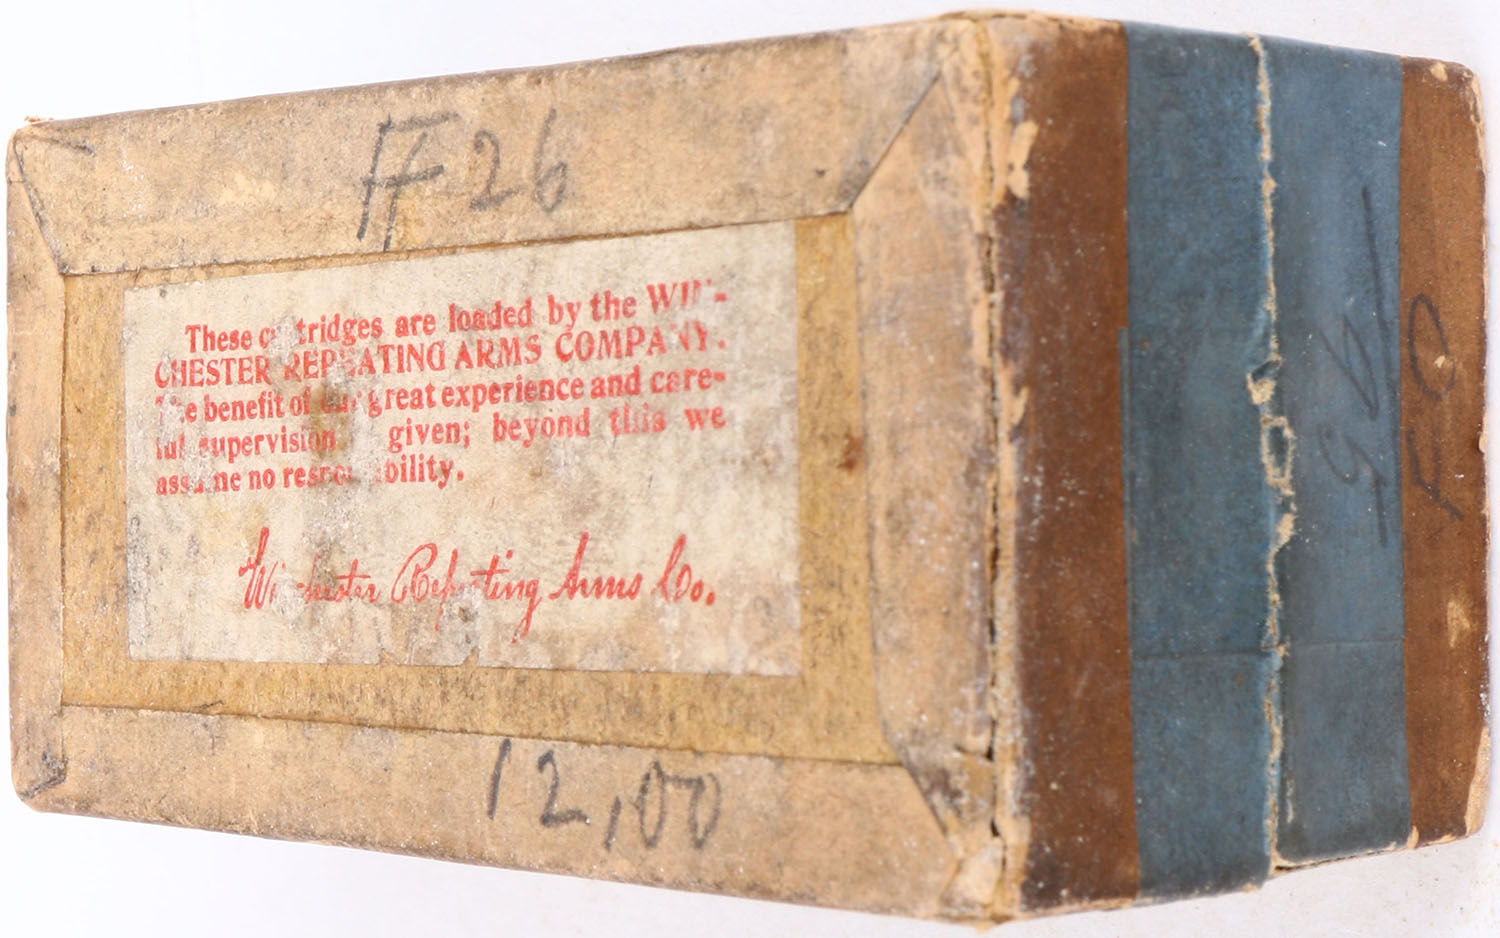 FF 26
These cartridges are loaded by the WIN-
CHESTER REPEATING ARMS COMPANY.
The benefit of our great experience and care-
ful supervision given; beyond this we
assume no responsibility.
Winchester Repeating Arms Co.
12,00